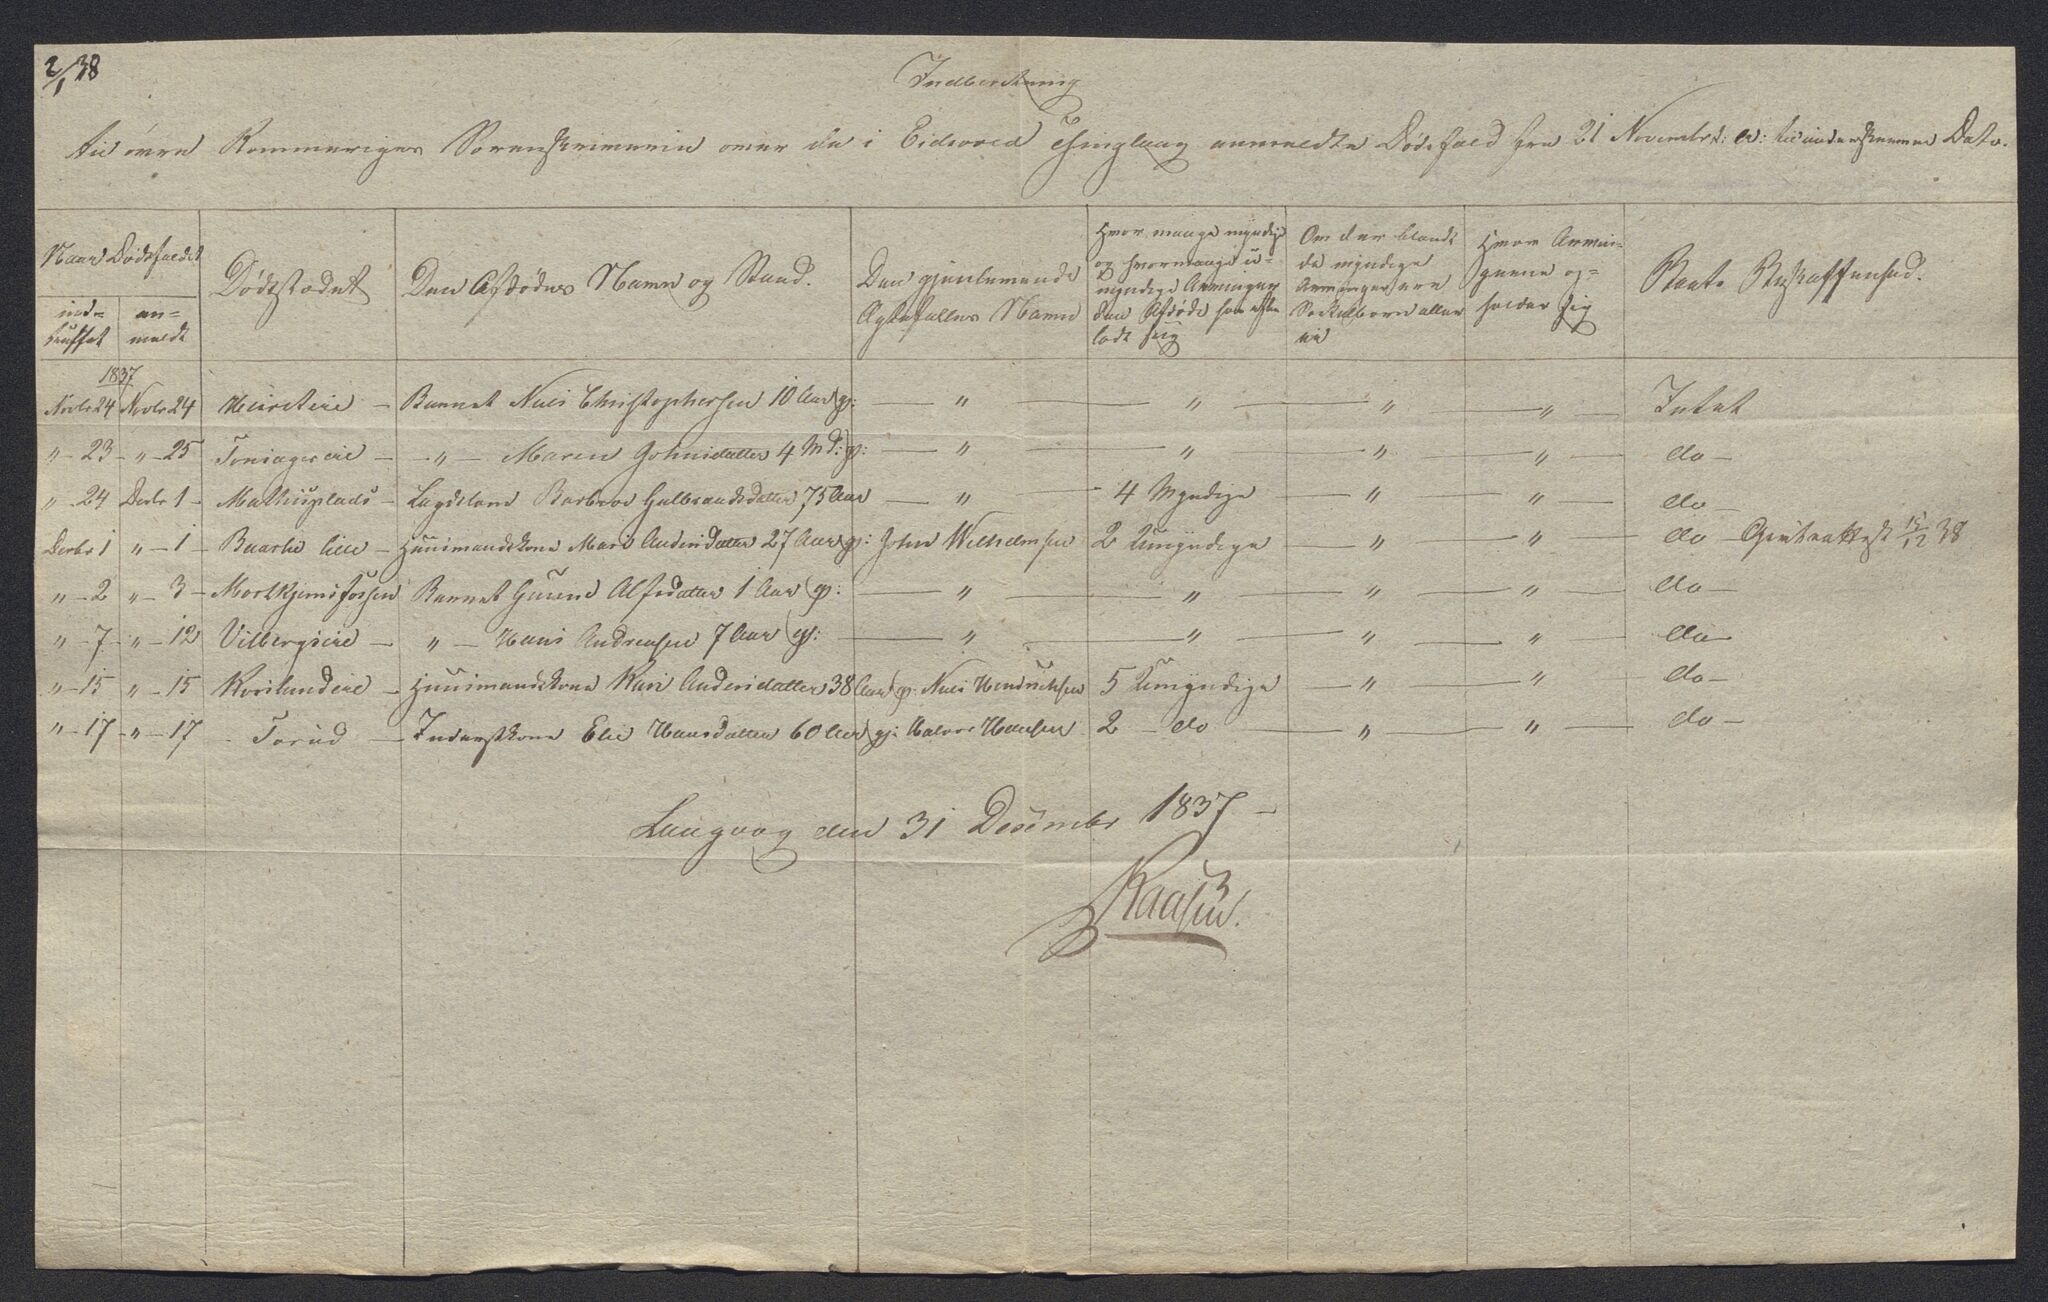 2/1 38
Indberetning
til øvre Rommeriges Sorenskriverie over de i Eidsvold Thinglaug anmeldte Dødsfald fra 21 Novembr d: A: til underskrevne Dato.
Naar Dødsfaldet
ind-
truffet
an-
meldt
Dødsstædet
Den Afdødes Navn og Stand.
Den gjenlevende
Ægtefælles Navn
Hvor mange myndige
og hvormange u-
myndige Arvinger
den Afdøde har efter
ladt sig
Om der blandt
de myndige
Arvinger ere
Søskebørn eller
ei
Hvor Arvin-
gerne op-
holder sig
Boets Beskaffenhed.
1837
Novbr 24 Novbr 24 — Barnet Niels Christophersen 10 Aar gl: — " — " — " — " — Intet
" - 23 - " - 25 — " — Maren Johnsdatter 4 Md: gl: — " — " — " — " — do —
" - 24 Decbr 1 - Mathisplads - Lægdslem Barbroe Gulbrandsdatter 75 Aar — " — 4 Myndige — " — " — do —
Decbr 1 " - 1 - Baarlie Eie - Huusmandskone Mari Andersdatter 27 Aar gl: John Wilhelmsen 2 Umyndige — " — " — do — 15/12 38
" - 2 " - 3 - Mortkjernsfossen Barnet Gurine Alfsdatter 1 Aar gl: — " — " — " — " — do —
" - 7 - " - 12 Vilbergseie — " — Hans Andreasen 7 Aar gl: — " — " — " — " — do —
" - 15 " - 15 Korslundeie - Huusmandskone Kari Andersdatter 38 Aar gl: Niels Hendrichsen 5 Umyndige — " — " — do —
" - 17 - " - 17 - Torud — Inderstkone Elie Hansdatter 60 Aar gl: Halvor Hansen 2 - do — " — " — do —
Langvag den 31 Desember 1837 —
Kaasen.